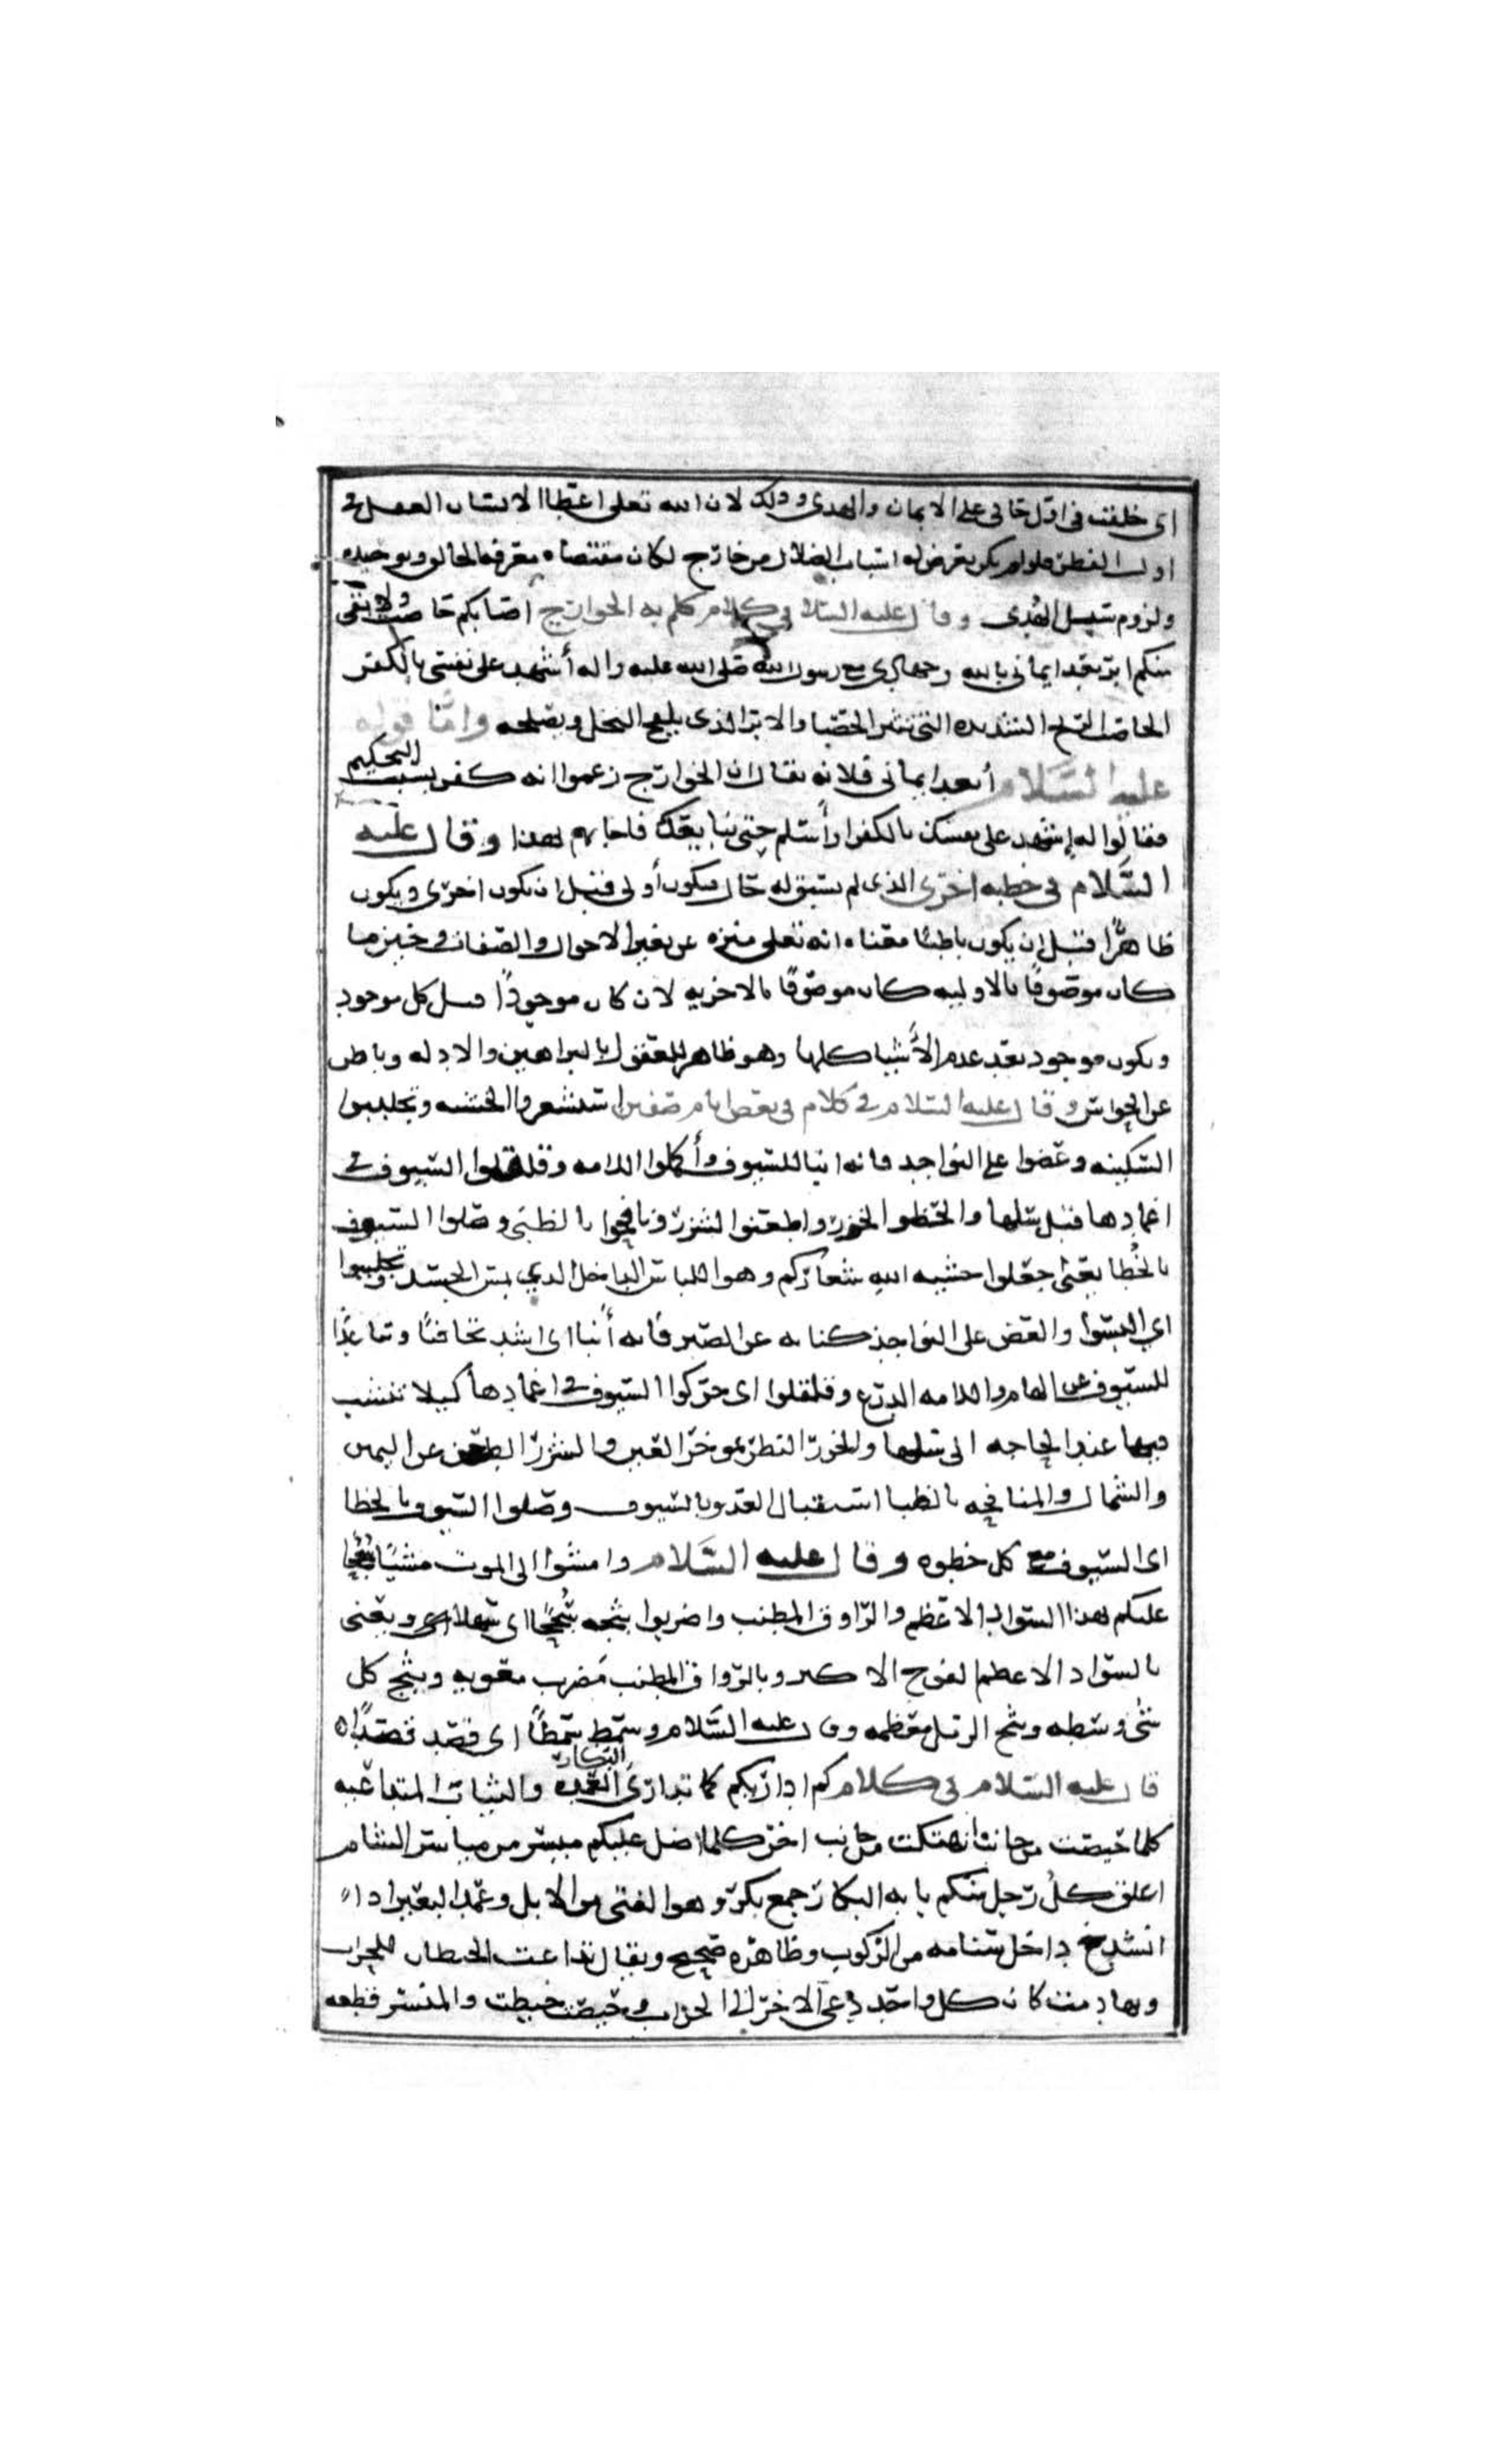 اى خلقت فى اول حالى على الايمان والهدى وذلك لان الله تعلى اعطا الانسان العقل فى
اول الفطره فلو لم يكن يعرض له اسباب الضلال من خارج لكان مقتضاه معرفه الخالق وتوحيده
ولزوم سبيل الهدى وقال عليه السلام فى كلام كلم به الخوارج اصابكم حاصب ولا بقى
منكم ابر بعد ايمانى بالله وجهادى مع رسول الله صلى الله عليه واله أشهد على نفسى بالكفر
الحاصب الريح الشديده التى تثير الحصبا والابر الذى يلقح النخل ويصلحه واما قوله
عليه السلام أبعد ايمانى فلانه يقال ان الخوارج زعموا انه كفر بسبب التحكيم
فقالوا له إشهد على نفسك بالكفر وأسلم حتى نبايعك فاجابهم بهذا وقال عليه
السلام فى خطبه اخرى الذى لم يسبق له حال فيكون أولى قبل ان يكون اخرى ويكون
ظاهرًا قبل ان يكون باطنًا معناه انه تعلى منزه عن تغير الاحوال والصفات
كان موصوفًا بالاوليه كان موصوفًا بالاخريه لان كان موجودًا قبل كل موجود
ويكون موجود بعد عدم الأشيا كلها وهو ظاهر للعقول بالبراهين والادله وباطن
عن الحواس وقال عليه السلام فى كلام فى بعض ايام صفين استشعروا الخشيه وتجلببوا
السكينه وعضوا على النواجد فانه انبا للسيوف وأكملوا اللامه وقلقلوا السيوف فى
اغمادها قبل سلها والحظوا الخزر واطعنوا الشزر ونافحوا بالظبى وصلوا السيوف
بالخُطا يعنى اجعلوا خشيه الله شعاركم وهو اللباس الداخل الدي يستر الجسد وتجلببوا
اي البسوا والعض على النواجذ كنايه عن الصبر فانه أنبا اى اشد تجافيًا وتباعدًا
للسيوف عن الهام واللامه الدرع وقلقلوا اى حركوا السيوف فى اغمادها كيلا تنشب
فيها عند الحاجه الى سلها والخزر النظر بموخر العين والشزر الطعن عن اليمين
والشمال والمنافحه بالظبا استقبال العدو بالسيوف وصلوا السيوف بالخطا
اى السيوف مع كل خطوه وقال عليه السلام وامشوا الى الموت مشيًا سُجُحا
عليكم بهذا السواد الاعظم والرواق المطنب واضربوا ثبجه سُجُحًا اى سهلا ويعنى
بالسواد الاعظم الفوج الاكبر وبالرواق المطنب مضرب معويه وثبج كل
شى وسطه وثبج الرمل معظمه وقال عليه السلام وسمط سمطًا اى قصد قصدًا
قال عليه السلام فى كلام كم اداريكم كما تدارى البكار العمده والثياب المتداعيه
كلما حيصت من جانب انهتكت من جانب اخر كلما اضل عليكم ميسر من مياسر الشام
اغلق كلُ رجل منكم بابه البكار جمع بكر وهو الفتى من الابل وعمد البعير اذا
انشدخ داخل سنامه من الركوب وظاهره صحيح ويقال تداعت الحيطان للخراب
وتهادمت كان كل واحد دعى الاخر الى الخراب وحيصت خيطت والمنسر قطعه